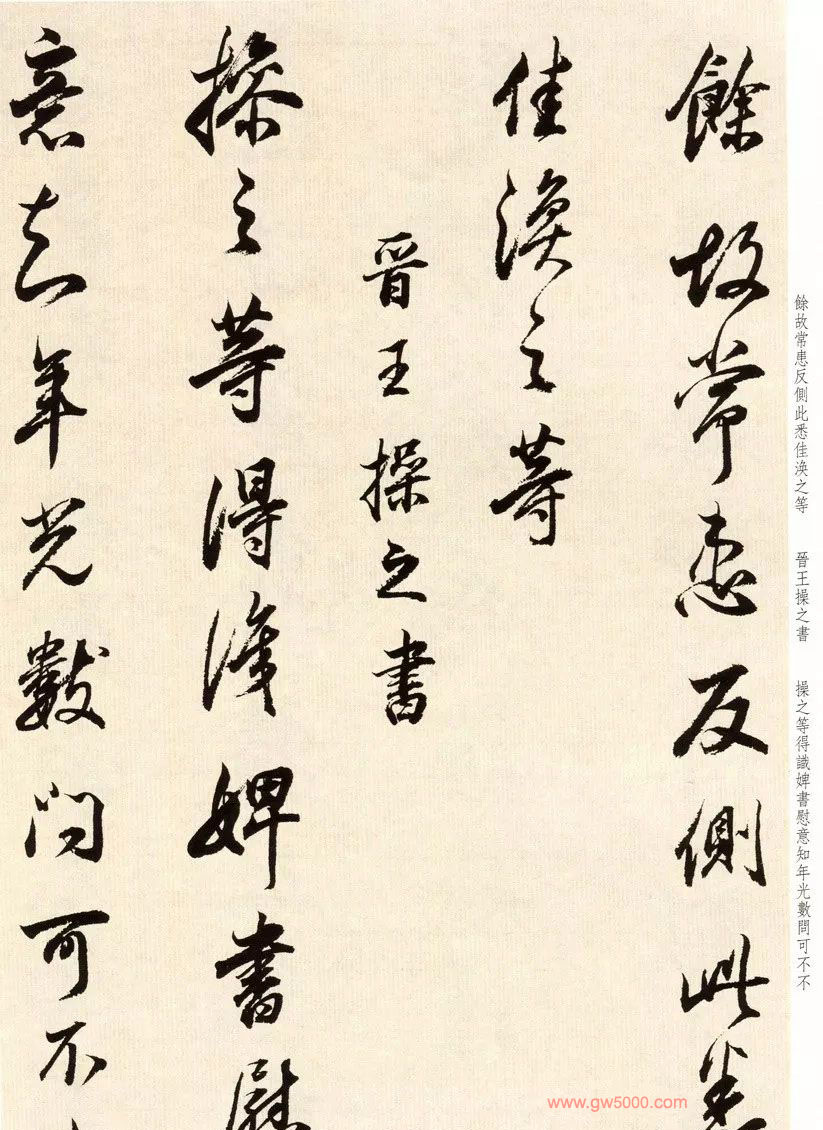 餘故常患反側此悉佳渙之等　晉王操之書　操之等得識婢書慰意知年光數問可不不
餘故常患反側此悉
佳渙之等
晉王操之書
操之等得識婢書慰
意知年光數問可不
www.gw5000.com